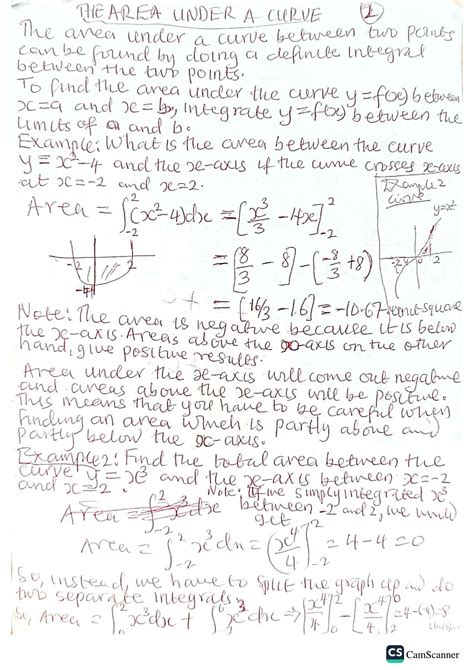 THE AREA UNDER A CURVE
The area under a curve between two points
can be found by doing a definite integral
between the two points.
To find the area under the curve y=f(x) between
x=a and x=b, integrate y=f(x) between the
limits of a and b.
Example: What is the area between the curve
y = x²-4 and the x-axis if the curve crosses x-axis
at x=-2 and x=2.
Example 2
curve
y=x³
Area = ∫₋₂² (x²-4)dx = [x³/3 - 4x]₋₂²
-2 2
-4
= [8/3 - 8] - [-8/3 + 8]
-2 0 2
= [16/3 - 16] = -10.67 unit square
Note: The area is negative because it is below
the x-axis. Areas above the x-axis on the other
hand, give positive results.
Area under the x-axis will come out negative
and areas above the x-axis will be positive.
This means that you have to be careful when
finding an area which is partly above and
partly below the x-axis.
Example 2: Find the total area between the
curve y=x³ and the x-axis between x=-2
and x=2.
Note: If we simply integrated x³
between -2 and 2, we would
get
Area = ∫₋₂² x³dx = (x⁴/4)₋₂² = 4-4=0
So, instead, we have to split the graph up and do
two separate integrals.